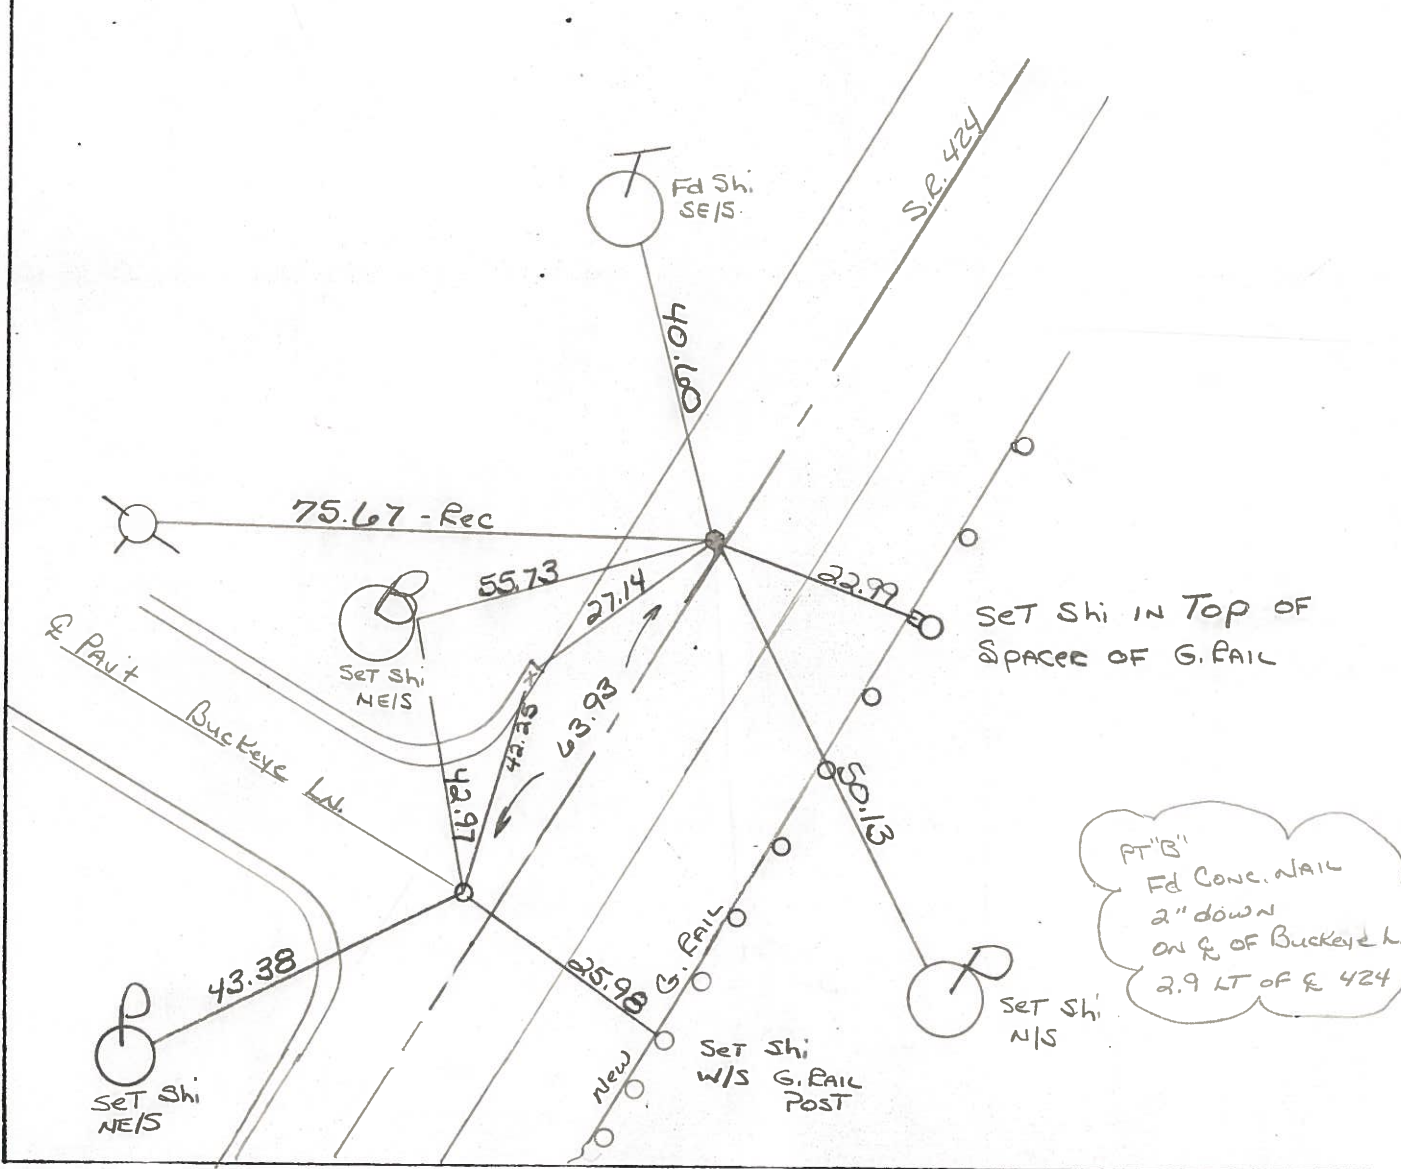 S.R. 424
Fd Shi
SE/S
40.60
75.67 - Rec
55.73
27.14
22.99
SeT Shi IN Top OF
SPACER OF G. RAIL
SeT Shi
NE/S
℄ PAV't
Buckeye LN.
42.25
63.93
42.97
50.13
PT "B"
Fd CONC. NAIL
2" dowN
ON ℄ OF Buckeye L
2.9 LT OF ℄ 424
43.38
25.98
G. RAIL
New
SeT Shi
N/S
SeT Shi
W/S G. RAIL
POST
SeT Shi
NE/S